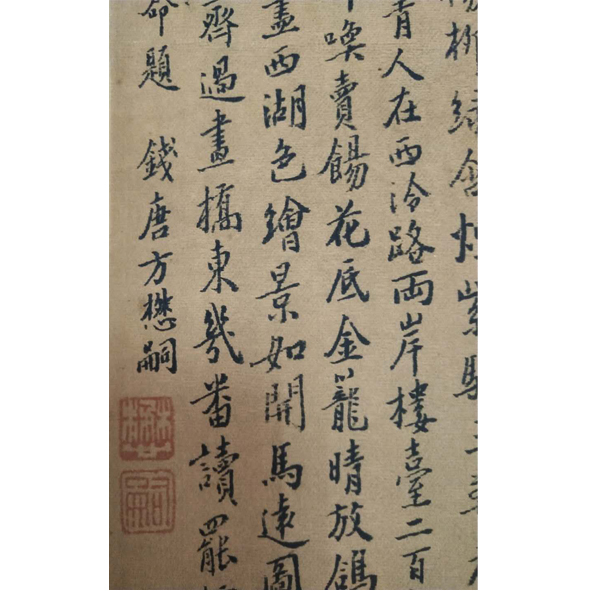 柳綠含烟紫
青人在西泠路兩岸樓臺二百
喚賣餳花底金籠晴放鴿
畫西湖色繪景如開馬遠圖
齊過畫橋東幾番讀罷
命題 錢唐方懋嗣
懋
嗣